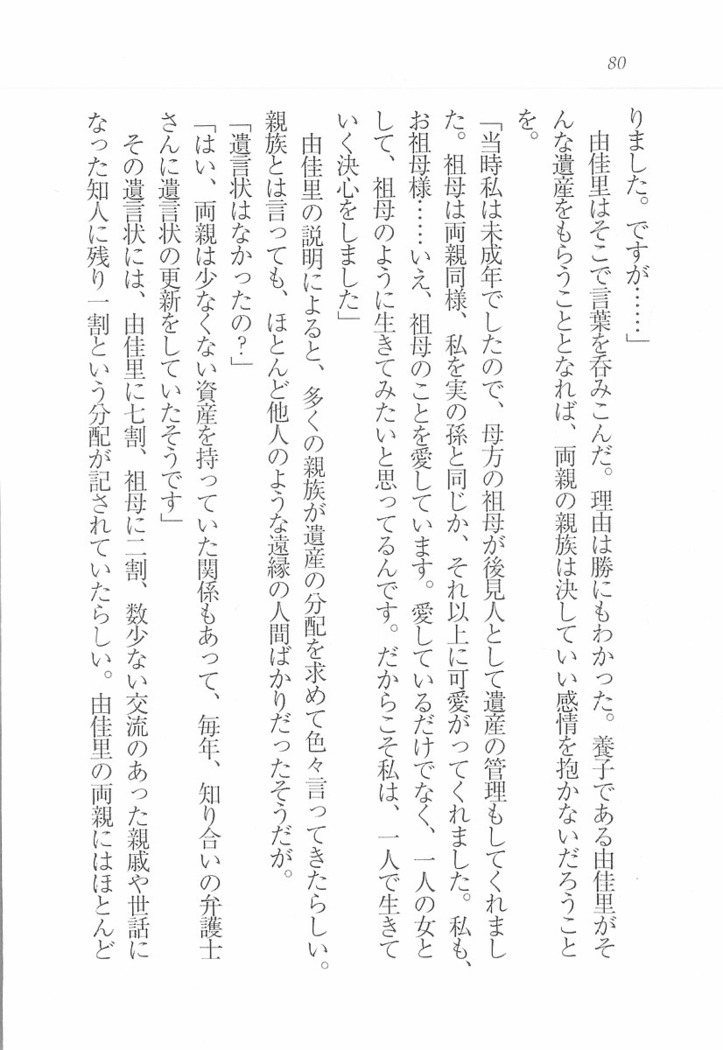 80
りました。ですが……」
　由佳里はそこで言葉を呑みこんだ。理由は勝にもわかった。養子である由佳里がそ
んな遺産をもらうこととなれば、両親の親族は決していい感情を抱かないだろうこと
を。
「当時私は未成年でしたので、母方の祖母が後見人として遺産の管理もしてくれまし
た。祖母は両親同様、私を実の孫と同じか、それ以上に可愛がってくれました。私も、
お祖母様……いえ、祖母のことを愛しています。愛しているだけでなく、一人の女と
して、祖母のように生きてみたいと思ってるんです。だからこそ私は、一人で生きて
いく決心をしました」
　由佳里の説明によると、多くの親族が遺産の分配を求めて色々言ってきたらしい。
親族とは言っても、ほとんど他人のような遠縁の人間ばかりだったそうだが。
「遺言状はなかったの？」
「はい、両親は少なくない資産を持っていた関係もあって、毎年、知り合いの弁護士
さんに遺言状の更新をしていたそうです」
　その遺言状には、由佳里に七割、祖母に二割、数少ない交流のあった親戚や世話に
なった知人に残り一割という分配が記されていたらしい。由佳里の両親にはほとんど